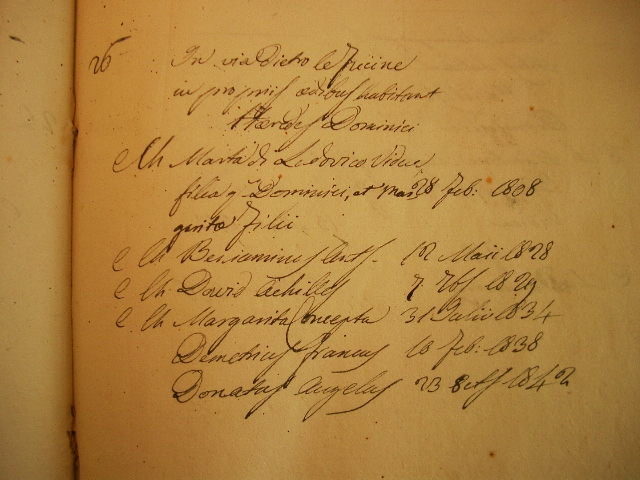 26 In via Dietro le Fucine
in propriis ædibus habitant
Hæredes Dominici
e Ch Marta di Ludovico Vidue
filia q. Dominici, et Mar 28 Feb: 1808
garitæ Filii
e Ch Beniaminus Ant. 12 Maii 1828
e Ch David Achilles 7. 7bs 1829
e Ch Margarita Concepta 31 Julii 1834
Demetrius Francus 10 Feb: 1838
Donatus Angelus 23 8bs 1842